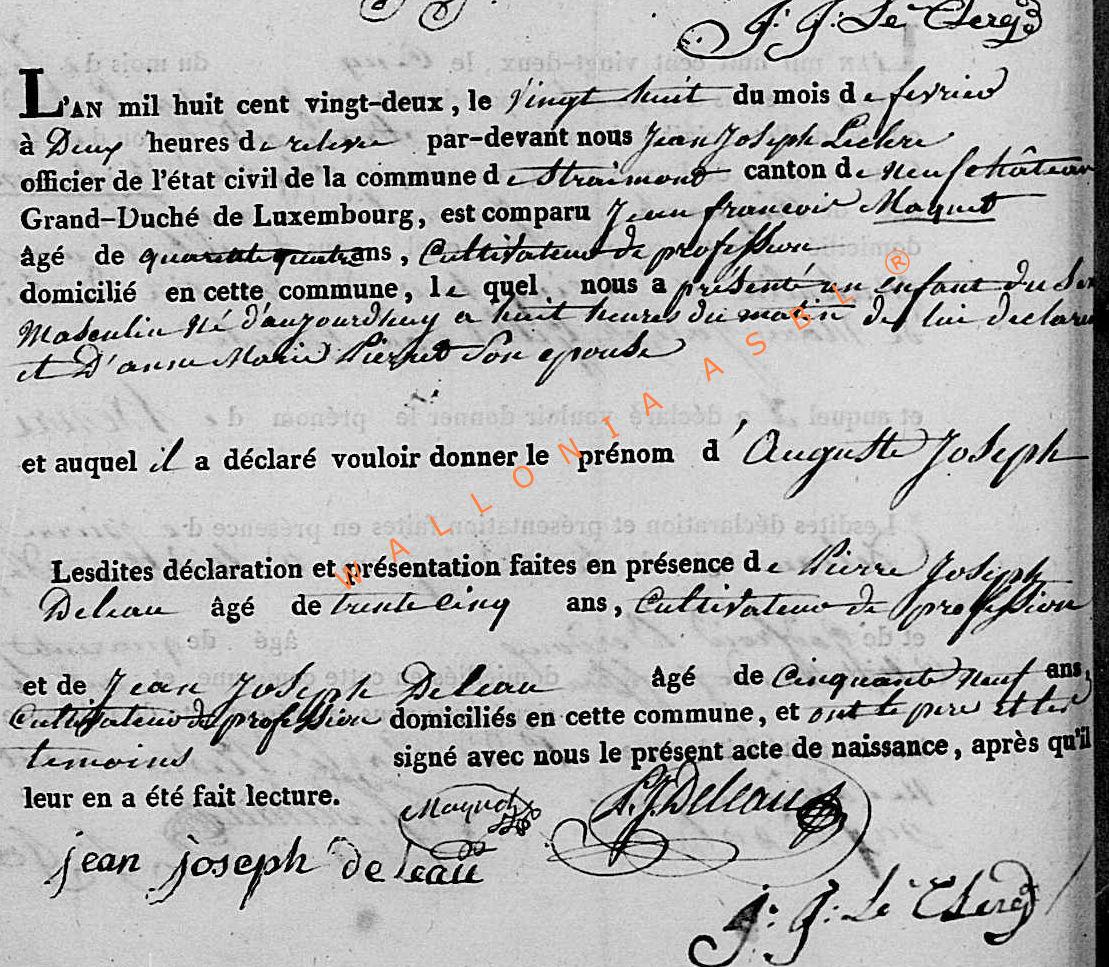 J. J. Le Clerq
L'AN mil huit cent vingt-deux, le vingt huit du mois de fevrier
à Deux heures de relevée par-devant nous Jean Joseph Leclere
officier de l'état civil de la commune de Straimont canton de neufchâteau
Grand-Duché de Luxembourg, est comparu Jean francois Maquet
âgé de quarante quatre ans, Cultivateur de profession
domicilié en cette commune, le quel nous a présenté un enfant du Sex
Masculin né d'aujourdhuy a huit heures du matin de lui declarant
et D'anne Marie Pierret Son epouse
et auquel il a déclaré vouloir donner le prénom d'Auguste Joseph
Lesdites déclaration et présentation faites en présence de Pierre Joseph
Deleau âgé de trente cinq ans, Cultivateur de profession
et de Jean Joseph Deleau âgé de Cinquante neuf ans,
Cultivateur de profession domiciliés en cette commune, et ont le pere et les
temoins signé avec nous le présent acte de naissance, après qu'il
leur en a été fait lecture.
Maquet
P. J. Deleau
jean joseph deleau
J. J. Le Clerq
WALLONIA ASBL ®